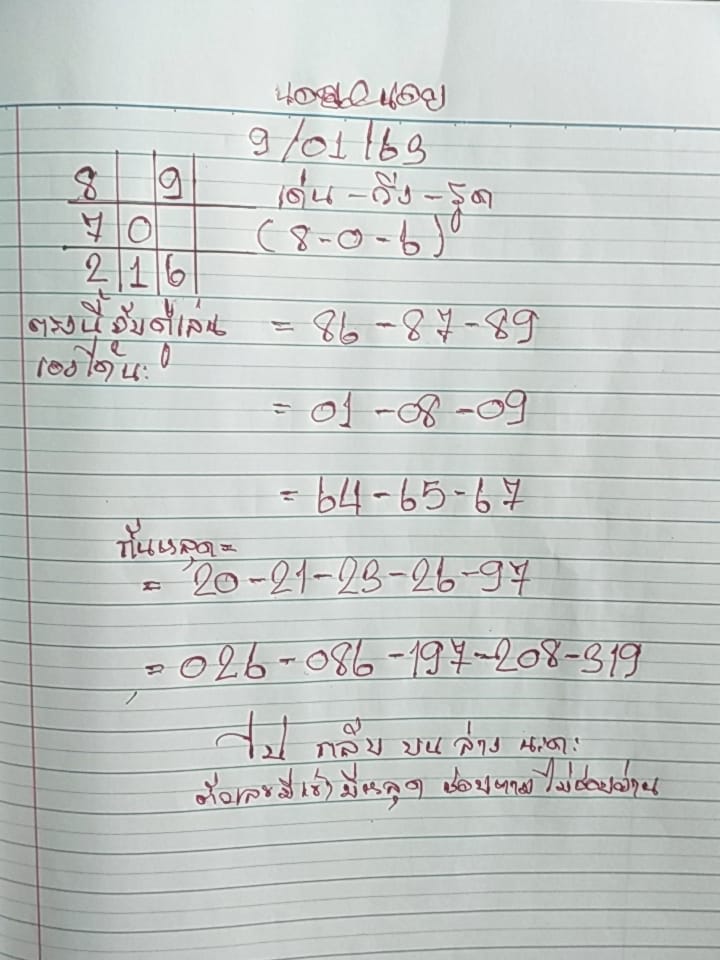 9/01/69
8 9 เด่น-วิ่ง-รูด
7 0 (8-0-6)
2 1 6
ตรงนี้จับคู่เล่น = 86-87-89
เองได้น่ะ
= 01-08-09
= 64-65-67
กันหลุด=
= 20-21-23-26-97
= 026-086-197-208-319
ไป กลับ บน ล่าง นะคะ
ตัวเลขมีเข้ามีหลุด ชอบตามไม่ชอบผ่าน